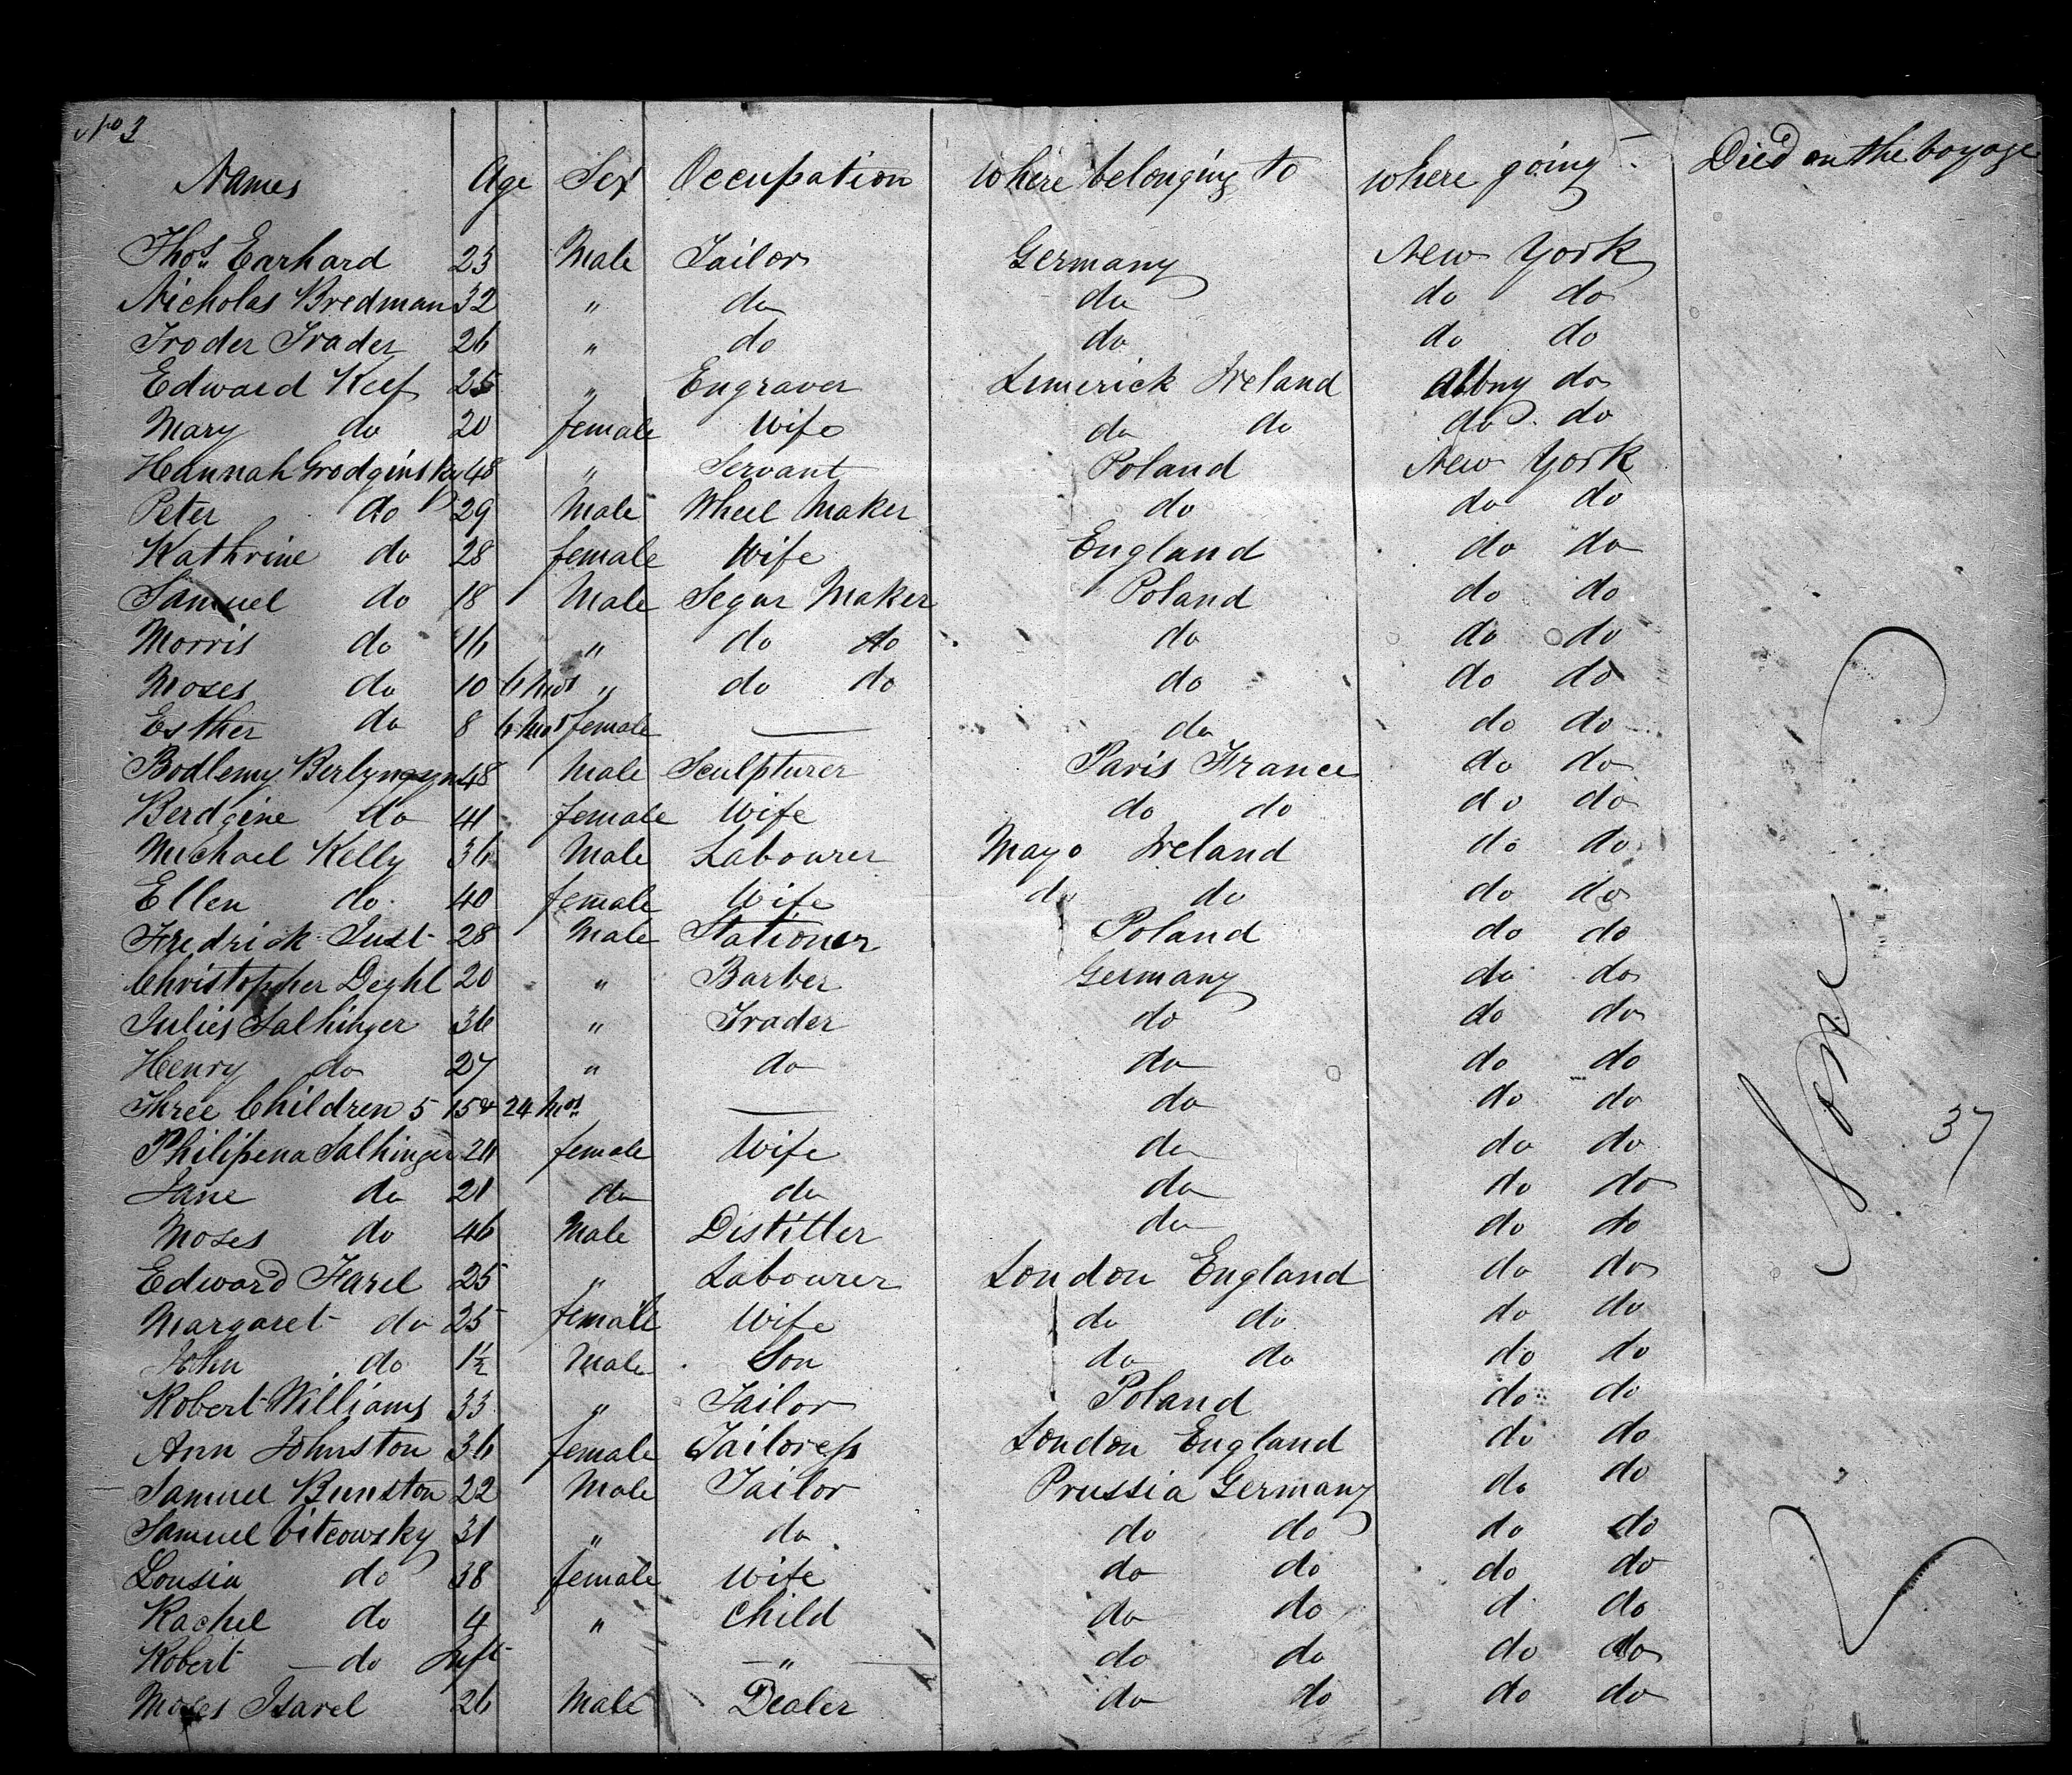 No 3
Names Age Sex Occupation Where belonging to where going Died on the voyage
Thos. Earhard 23 Male Tailor Germany New York
Nicholas Bredman 32 " do do do do
Troder Trader 26 " do do do do
Edward Keef 25 " Engraver Limerick Ireland Albny do
Mary do 20 female Wife do do do do
Hannah Grodginsky 48 " Servant Poland New York
Peter do 29 Male Wheel Maker do do do
Kathrine do 28 female Wife England do do
Samuel do 18 Male Segar Maker Poland do do
Morris do 16 " do do do do do
Moses do 10 6 mos " do do do do do
Esther do 8 6 mos female — do do do
Bodlemy Berlyngyn 48 Male Sculpturer Paris France do do
Berdgine do 41 female Wife do do do do
Michael Kelly 36 Male Labourer Mayo Ireland do do
Ellen do 40 female Wife do do do do
Fredrick Just 28 Male Stationer Poland do do
Christopher Deghl 20 " Barber Germany do do
Julies Salhinger 36 " Trader do do do
Henry do 27 " do do do do
Three Children 5 15 & 24 mos — do do do
Philipena Salhinger 24 female Wife do do do
Jane do 21 do do do do do
Moses do 46 Male Distitler do do do
Edward Farel 25 " Labourer London England do do
Margaret do 25 female Wife do do do do
John do 1½ Male Son do do do do
Robert Williams 33 " Tailor Poland do do
Ann Johnston 36 female Tailoress London England do do
Samuel Bunston 22 Male Tailor Prussia Germany do do
Samuel Vitcowsky 31 " do do do do do
Lousia do 38 female Wife do do do do
Rachel do 4 " Child do do d do
Robert — do Inft — " — do do do do
Moses Isarel 26 Male Dealer do do do do
None
37